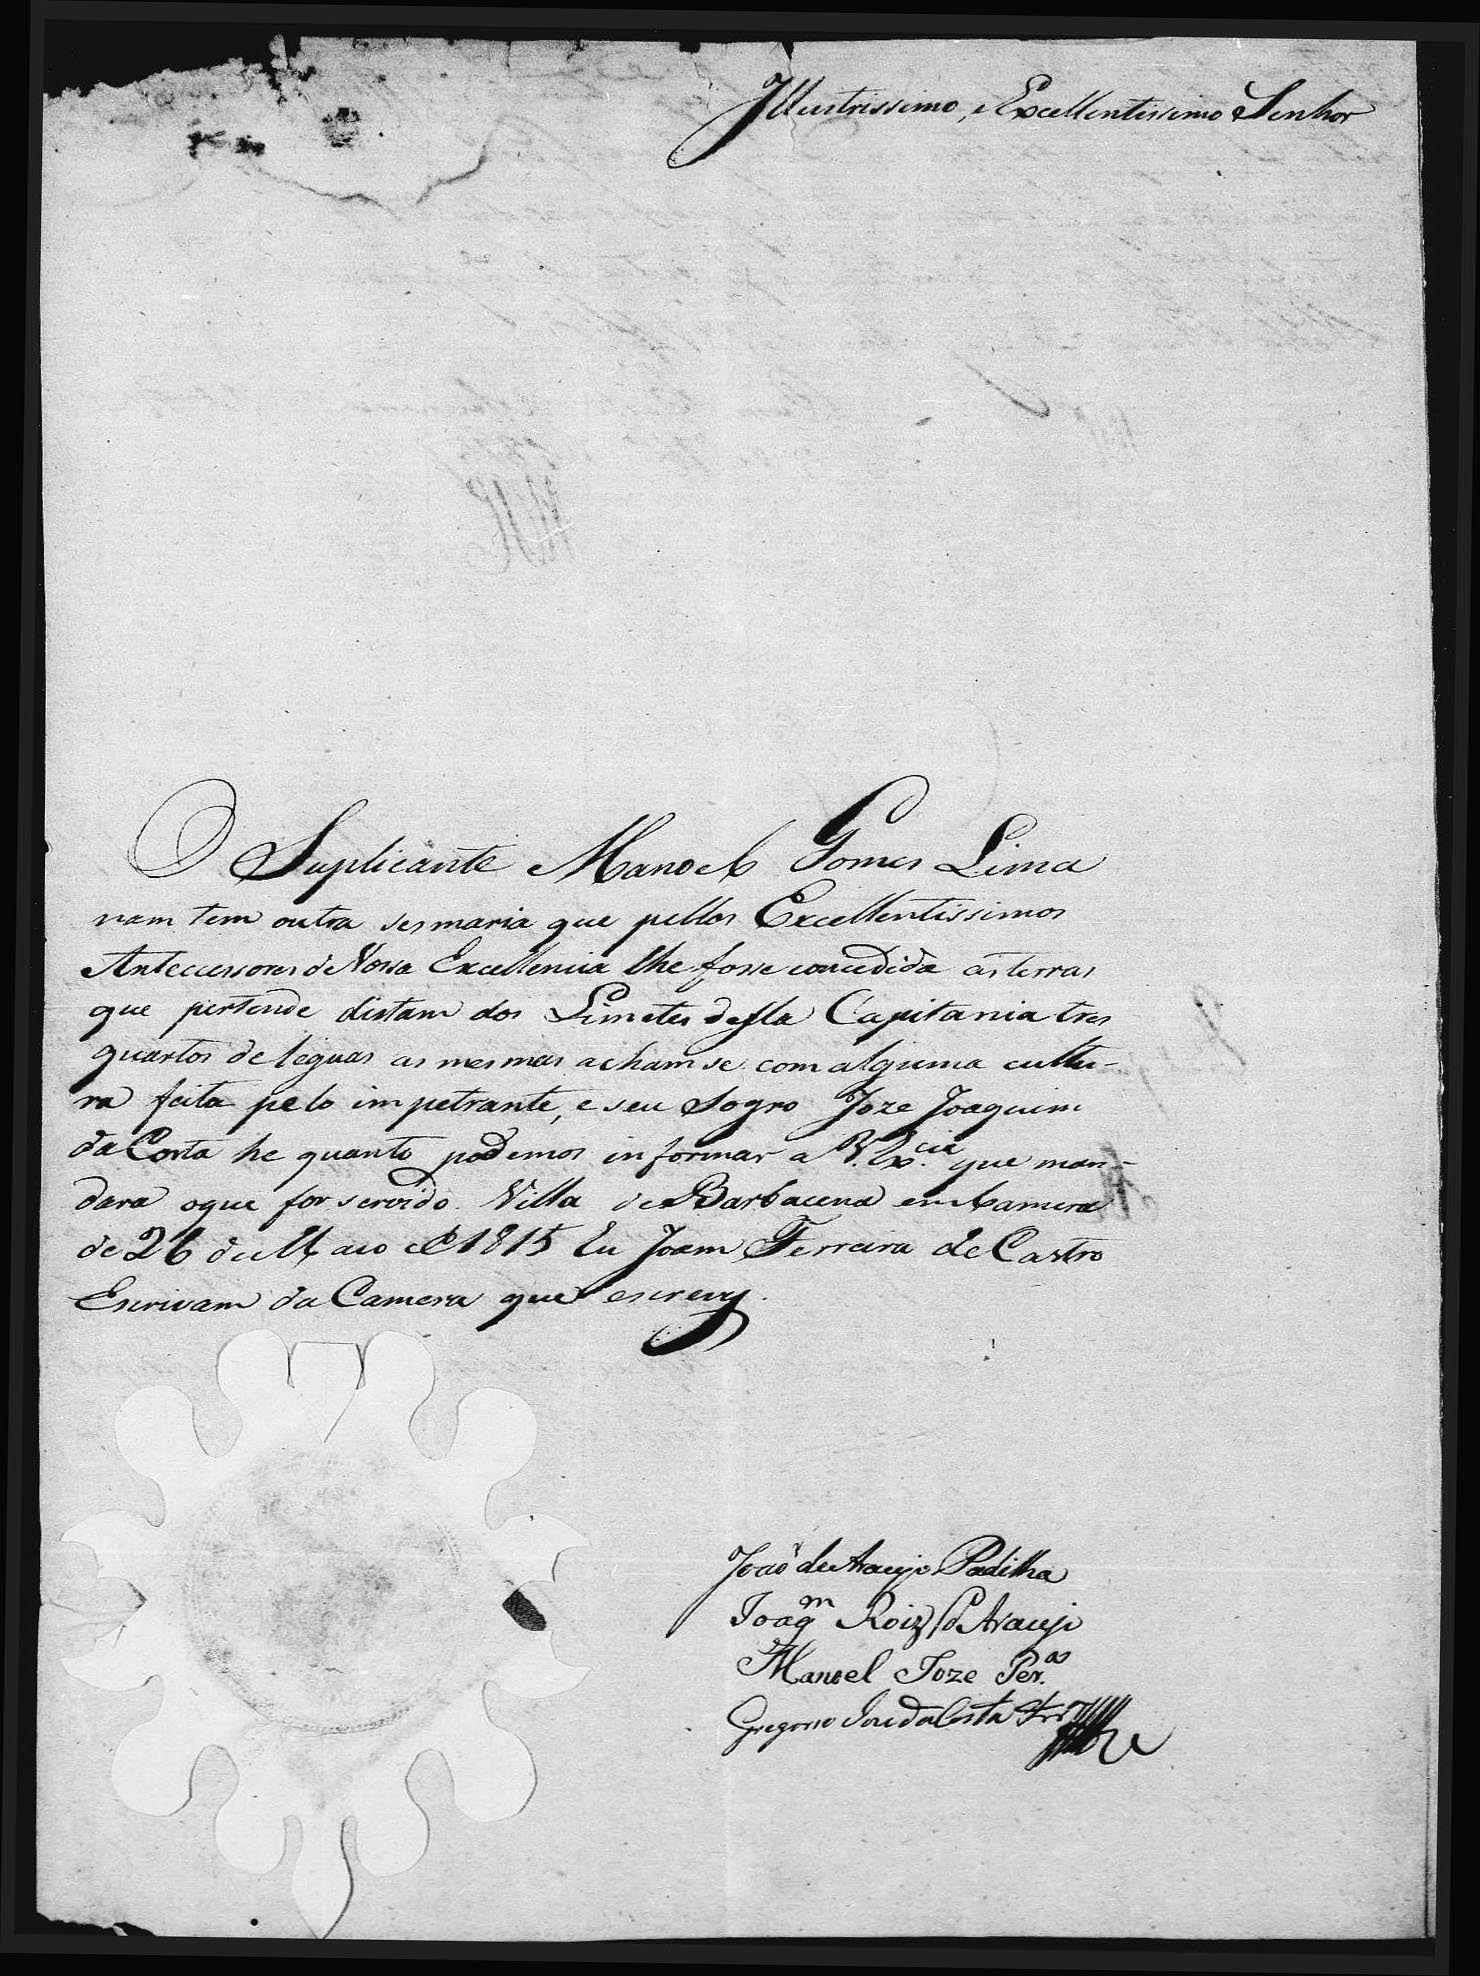 Illustrissimo, e Excellentissimo Senhor
O Suplicante Manoel Gomes Lima
nam tem outra sesmaria que pellos Excellentissimos
Anteccessores de Vossa Excellencia lhe fosse concedida as terras
que pertende distam dos Limetes desta Capitania tres
quartos de leguas as mesmas achamse com alguma cultu-
ra feita pelo impetrante, e seu Sogro Joze Joaquim
da Costa he quanto podemos informar a V. Ex.cia que man-
dara oque for servido. Villa de Barbacena em Camera
de 26 de Maio de 1815 Eu Joam Ferreira de Castro
Escrivam da Camera que escrevy.
João de Araujo Padilha
Joaqm Roiz de Araujo
Manoel Joze Per.as
Gregorio Joze da Costa